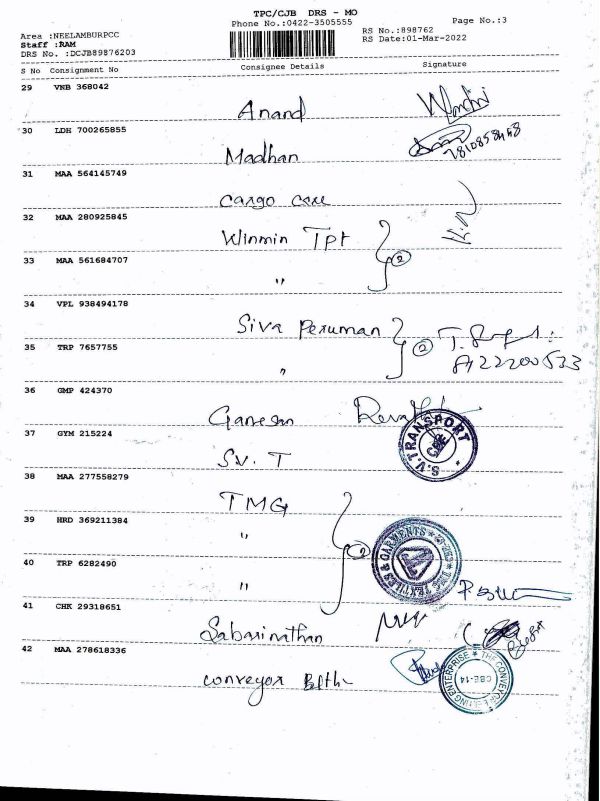 TPC/CJB DRS - MO
Phone No.:0422-3505555
Page No.:3
Area :NEELAMBURPCC
Staff :RAM
DRS No. :DCJB89876203
RS No.:898762
RS Date:01-Mar-2022
S No Consignment No Consignee Details Signature
29 VNB 368042
Anand
30 LDH 700265855
Madhan
31 MAA 564145749
cargo care
32 MAA 280925845
Winmin Tpt
2
33 MAA 561684707
"
34 VPL 938494178
Siva Peruman
2
35 TRP 7657755
"
36 GMP 424370
Ganesan
37 GYM 215224
S.V. TRANSPORT
CBE
SV. T
38 MAA 277558279
TMG
39 HRD 369211384
"
40 TRP 6282490
TEXTILES & GARMENTS
"
41 CHK 29318651
Sabarinathan
42 MAA 278618336
THE CONVEYOR BELTING ENTERPRISE
CBE-14
conveyor